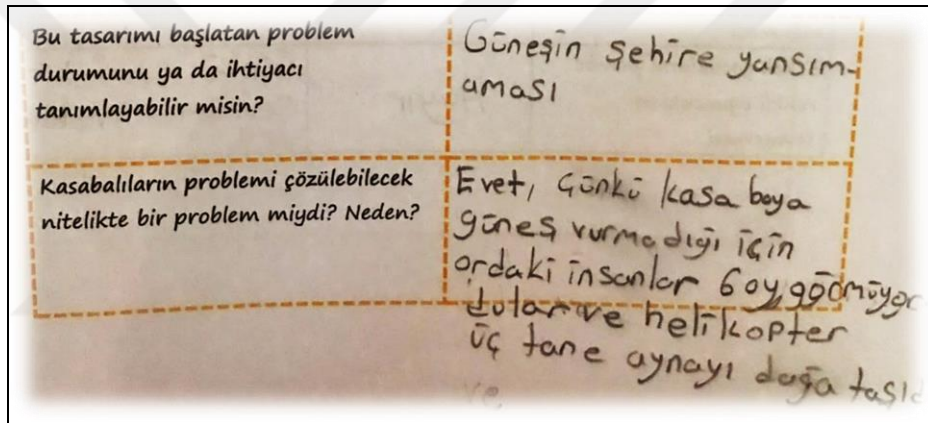 Bu tasarımı başlatan problem
durumunu ya da ihtiyacı
tanımlayabilir misin?
Güneşin şehire yansım-
aması
Kasabalıların problemi çözülebilecek
nitelikte bir problem miydi? Neden?
Evet, Çünkü kasa baya
güneş vurmadığı için
ordaki insanlar 6 ay görmüyor
dular ve helikopter
üç tane aynayı dağa taşıd
ve